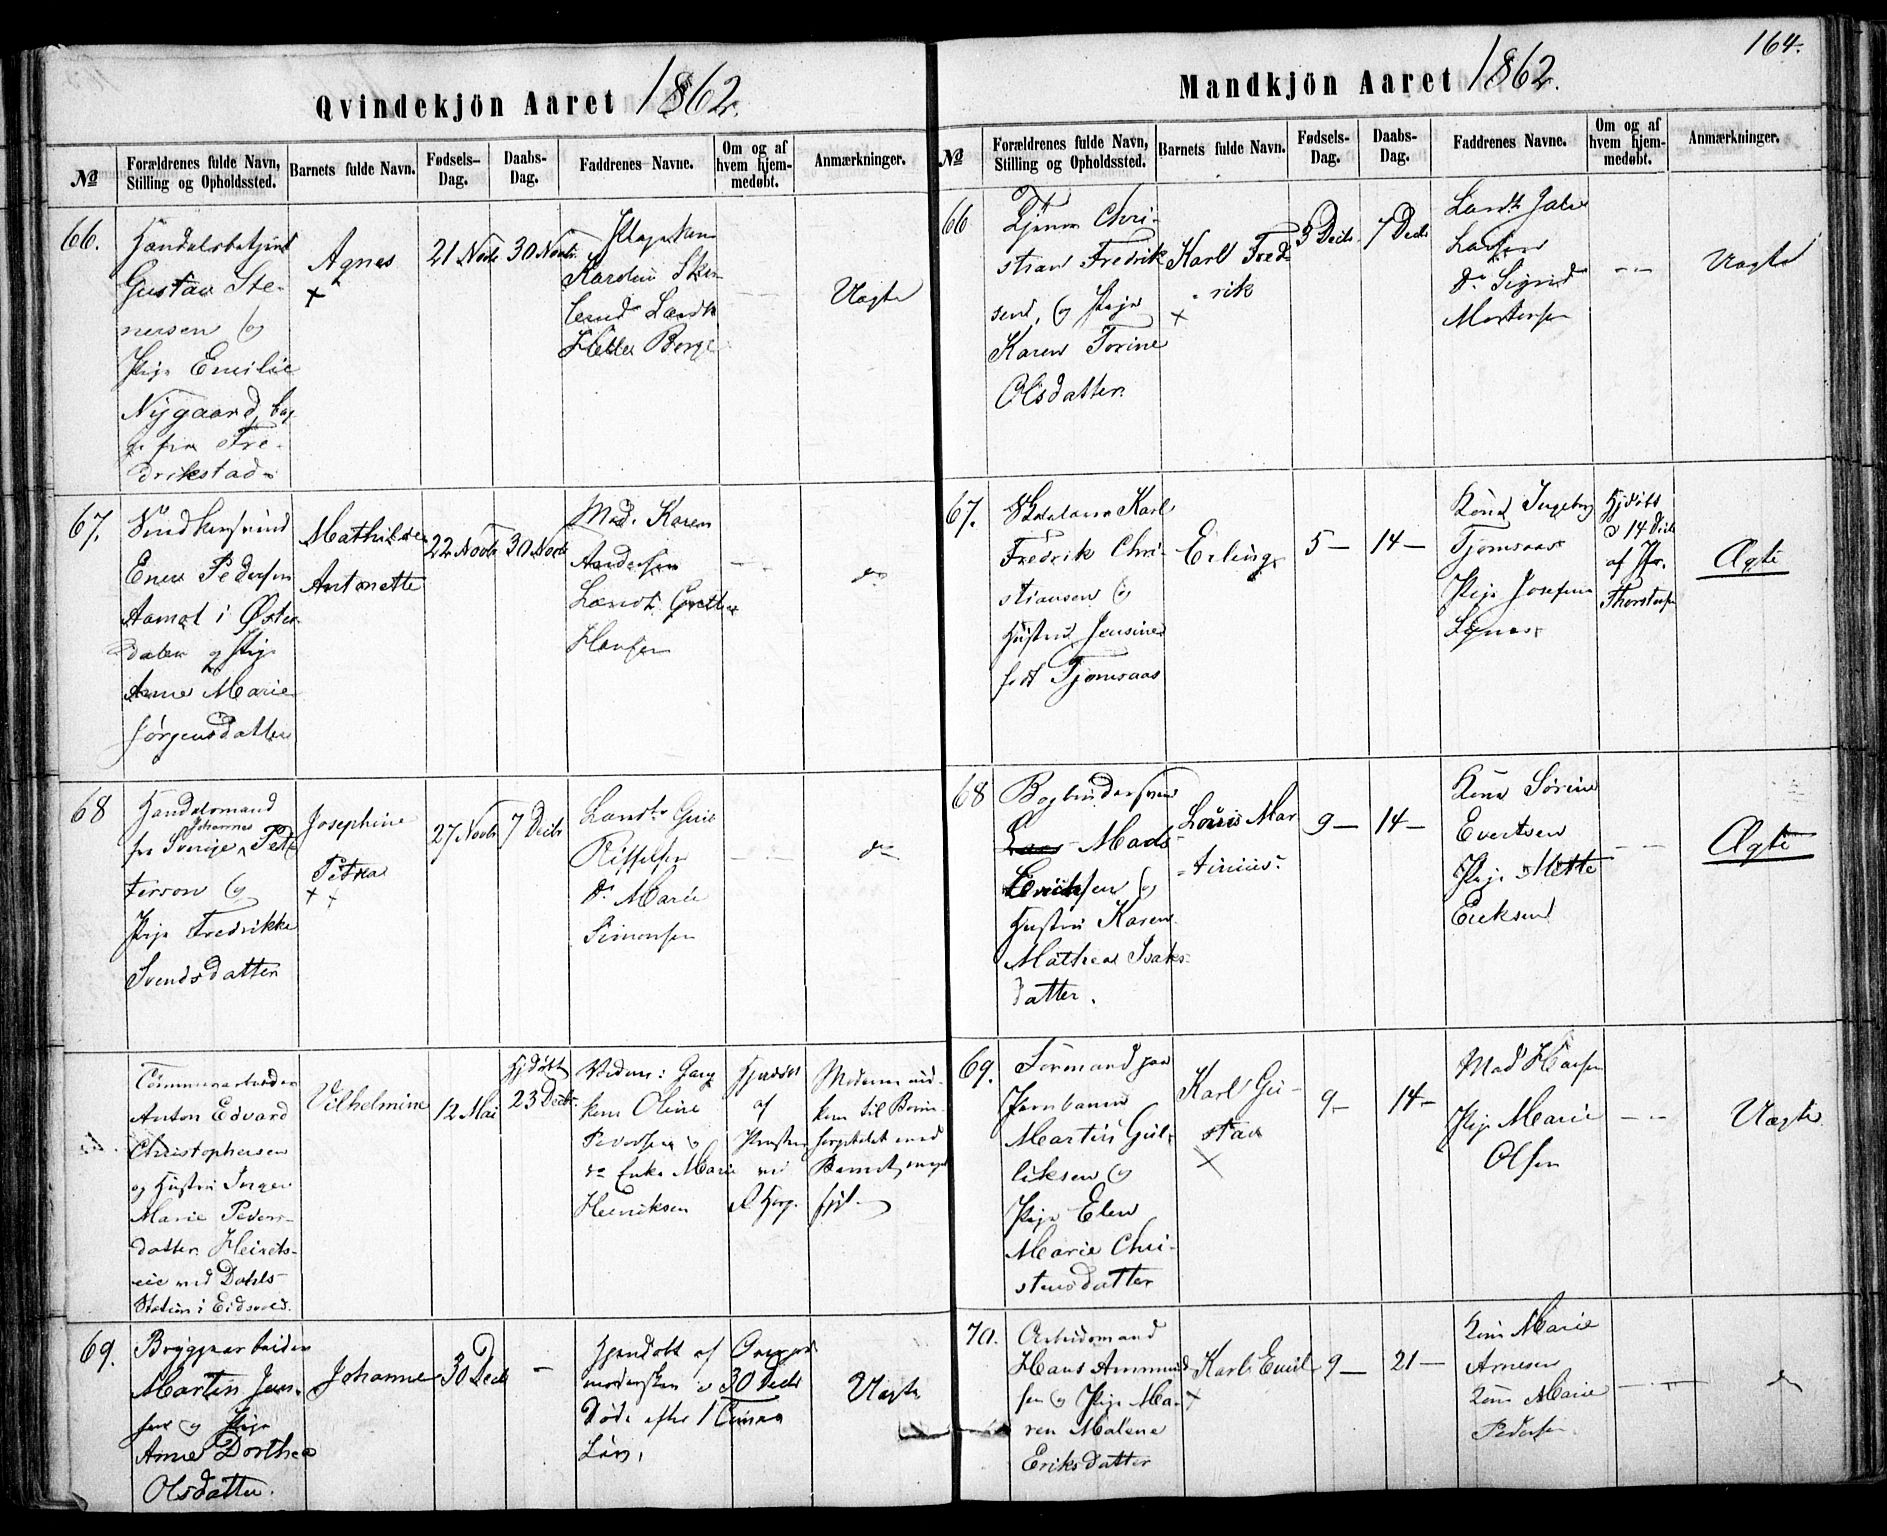 164.
Qvindekjön Aaret 1862.
№
Forældrenes fulde Navn, Stilling og Opholdssted.
Barnets fulde Navn.
Fødsels-Dag.
Daabs-Dag.
Faddrenes Navne.
Om og af hvem hjemmedøbt.
Anmærkninger.
66.
Handelsbetjent
Gustav Ste-
nersen og
Pige Emilie
Nygaard, beg-
ge fra Fre-
drikstad
Agnes
×
21 Novb
30 Novb
Karoline
Landh
Berge
Uægte
67.
Snedkersvend
Ener Pedersen
Aamot i Øster-
dalen og Pige
Anne Marie
Jørgensdatter
Mathilde
Antonette
22 Novb
30 Novb
Mad. Karen
Andersen
Grethe
Hansen
do
68
Handelsmand
fra Sverige Johannes Pet-
terson og
Pige Fredrikke
Svendsdatter
Josephine
Petrea
× ×
27 Novb
7 Decb
Dr Marie
Simonsen
do
Tømmerarbeider
Anton Edvard
Christophersen
og Hustru Inger
Marie Peders-
datter
eie ved Dahls
Station i Eidsvold.
Vilhelmine
12 Mai
Hjdøbt
23 Decb
Oline
Pedersen og
Enke Marie
Henriksen
Hjdøbt
af
ved
Moderen ind-
kom til
med
Barnet,
69.
Bryggearbeider
Martin Jen-
sen og Pige
Anne Dorthea
Olsdatter.
Johanne
30 Decb
—
Hjemdøbt af
modersken d 30 Decb
Døde efter 1 Times
Liv.
Uægte
Mandkjön Aaret 1862.
№
Forældrenes fulde Navn, Stilling og Opholdssted.
Barnets fulde Navn.
Fødsels-Dag.
Daabs-Dag.
Faddrenes Navne.
Om og af hvem hjemmedøbt.
Anmærkninger.
66
Tjener Chri-
stian Fredrik
sen, og Pige
Karen Torine
Olsdatter.
Karl Fred-
rik
×
3 Decb
7 Decb
Larsen
Do Sigrid
Mortensen
Uægte
67.
Karl
Fredrik Chri-
stiansen og
Hustru Jensine
født Tjomsaas
Erling
5 —
14 —
Kone Ingeborg
Tjomsaas
Pige Josefine
Hjdøbt
d 14 Decb
af Jfr.
Thorstensen
Ægte
68
Bogbindersvend
Mads
Erichsen og
Hustru Karen
Mathea Isaks-
datter.
Louis Mar
tinius
9 —
14 —
Kone Sørine
Evertsen
Pige Mette
Ericksen
Ægte
69.
Formand paa
Jernbanen
Martin Gul-
liksen og
Pige Elen
Marie Chri-
stensdatter
Karl Gu-
stav
×
9 —
14 —
Mad Hansen
Pige Marie
Olsen
Uægte
70.
Arbeidsmand
Hans Ammund-
sen og Pige Ma-
ren Malene
Eriksdatter
Karl Emil
×
9 —
21 —
Kone Marie
Arnesen
Kone Marie
Pedersen
do